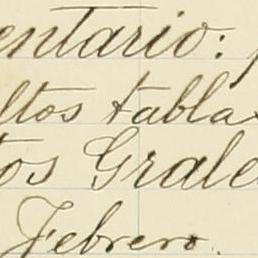 entario:
ltos tabla
tos Grale
Febrero.